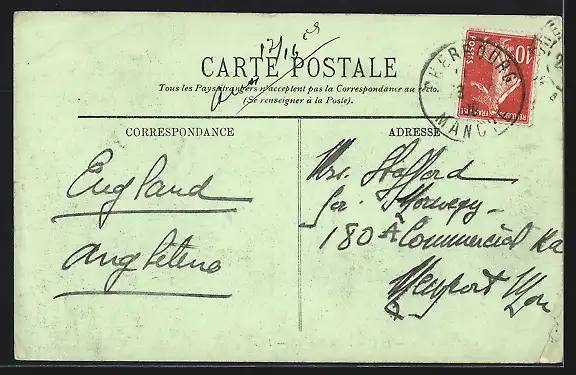 12/16
CARTE POSTALE
Tous les Pays étrangers n'acceptent pas la Correspondance au recto.
(Se renseigner à la Poste).
CORRESPONDANCE
ADRESSE
CHERBOURG
MANCHE
10
POSTES
England
Angleterre
Mrs. Stafford
180 A Commercial Rd
Newport Mon